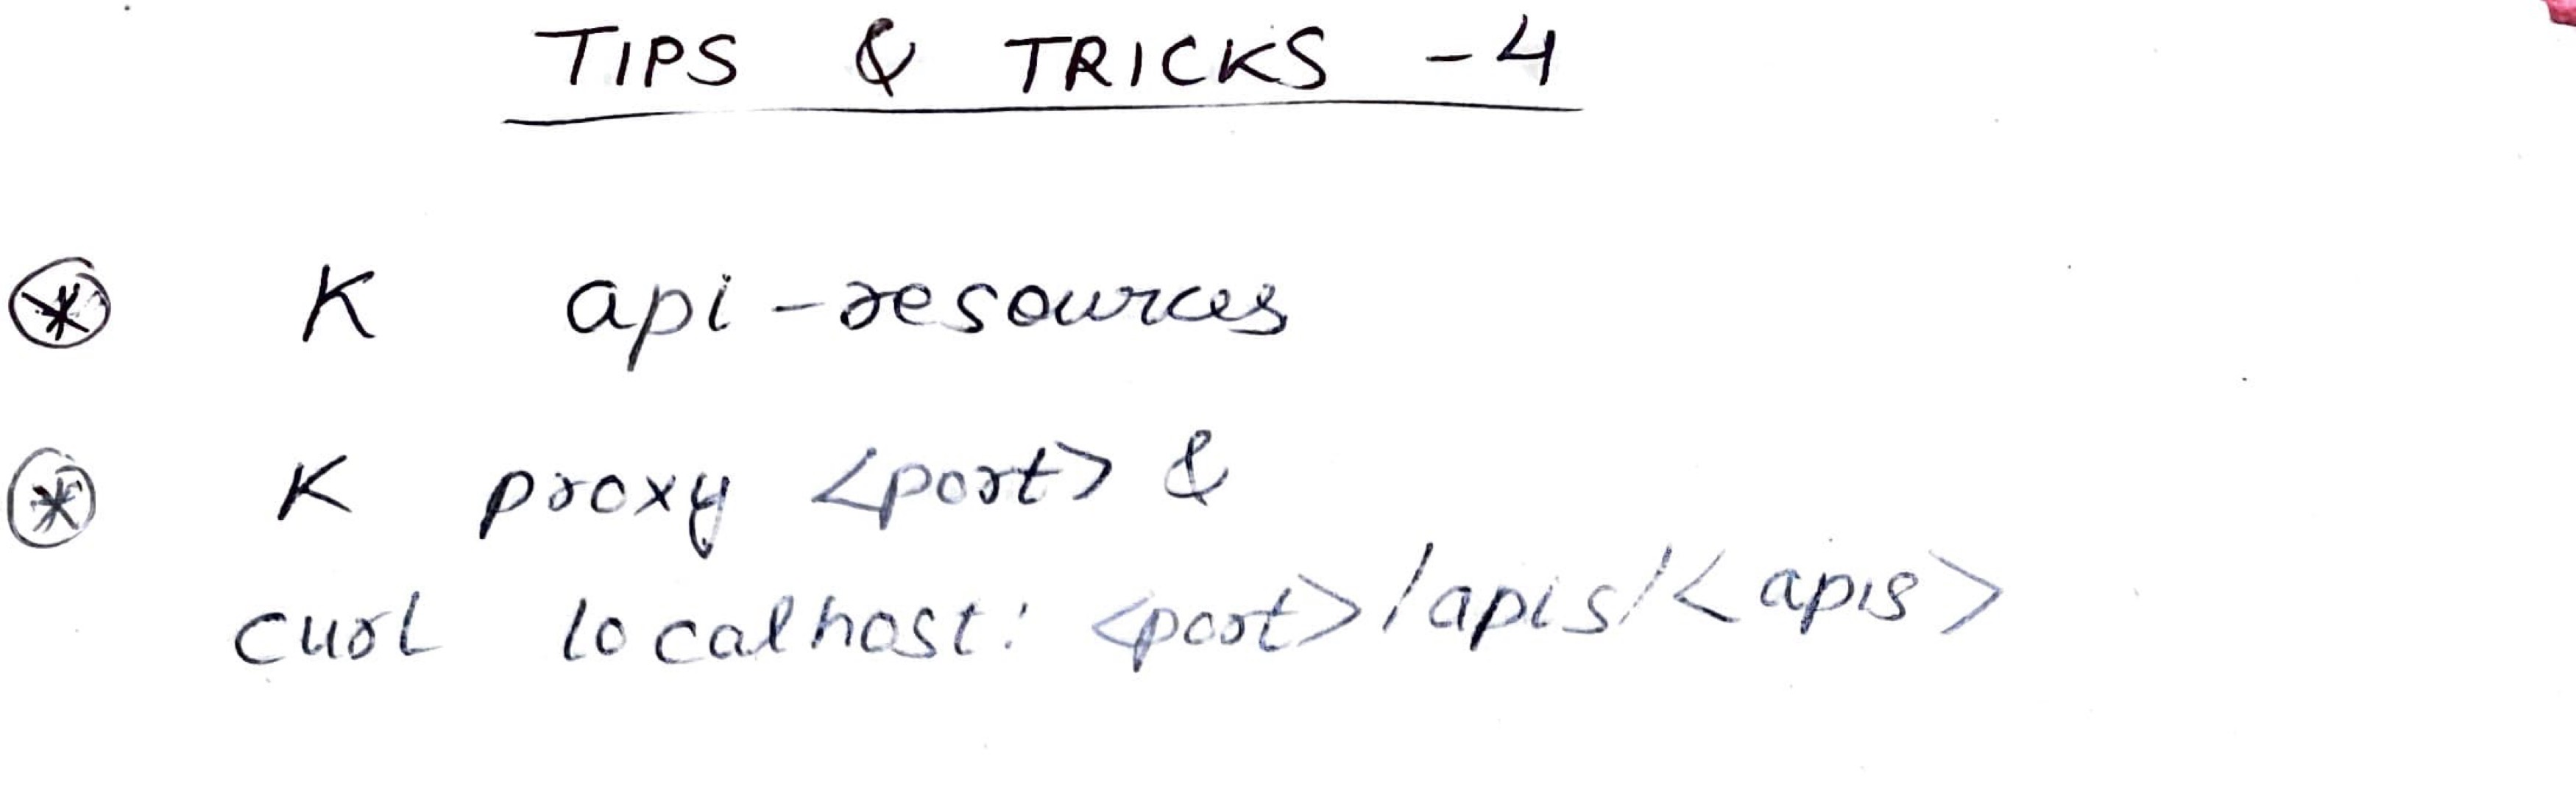 TIPS & TRICKS - 4
* K api-resources
* K proxy <port> &
curl localhost: <port>/apis/<apis>